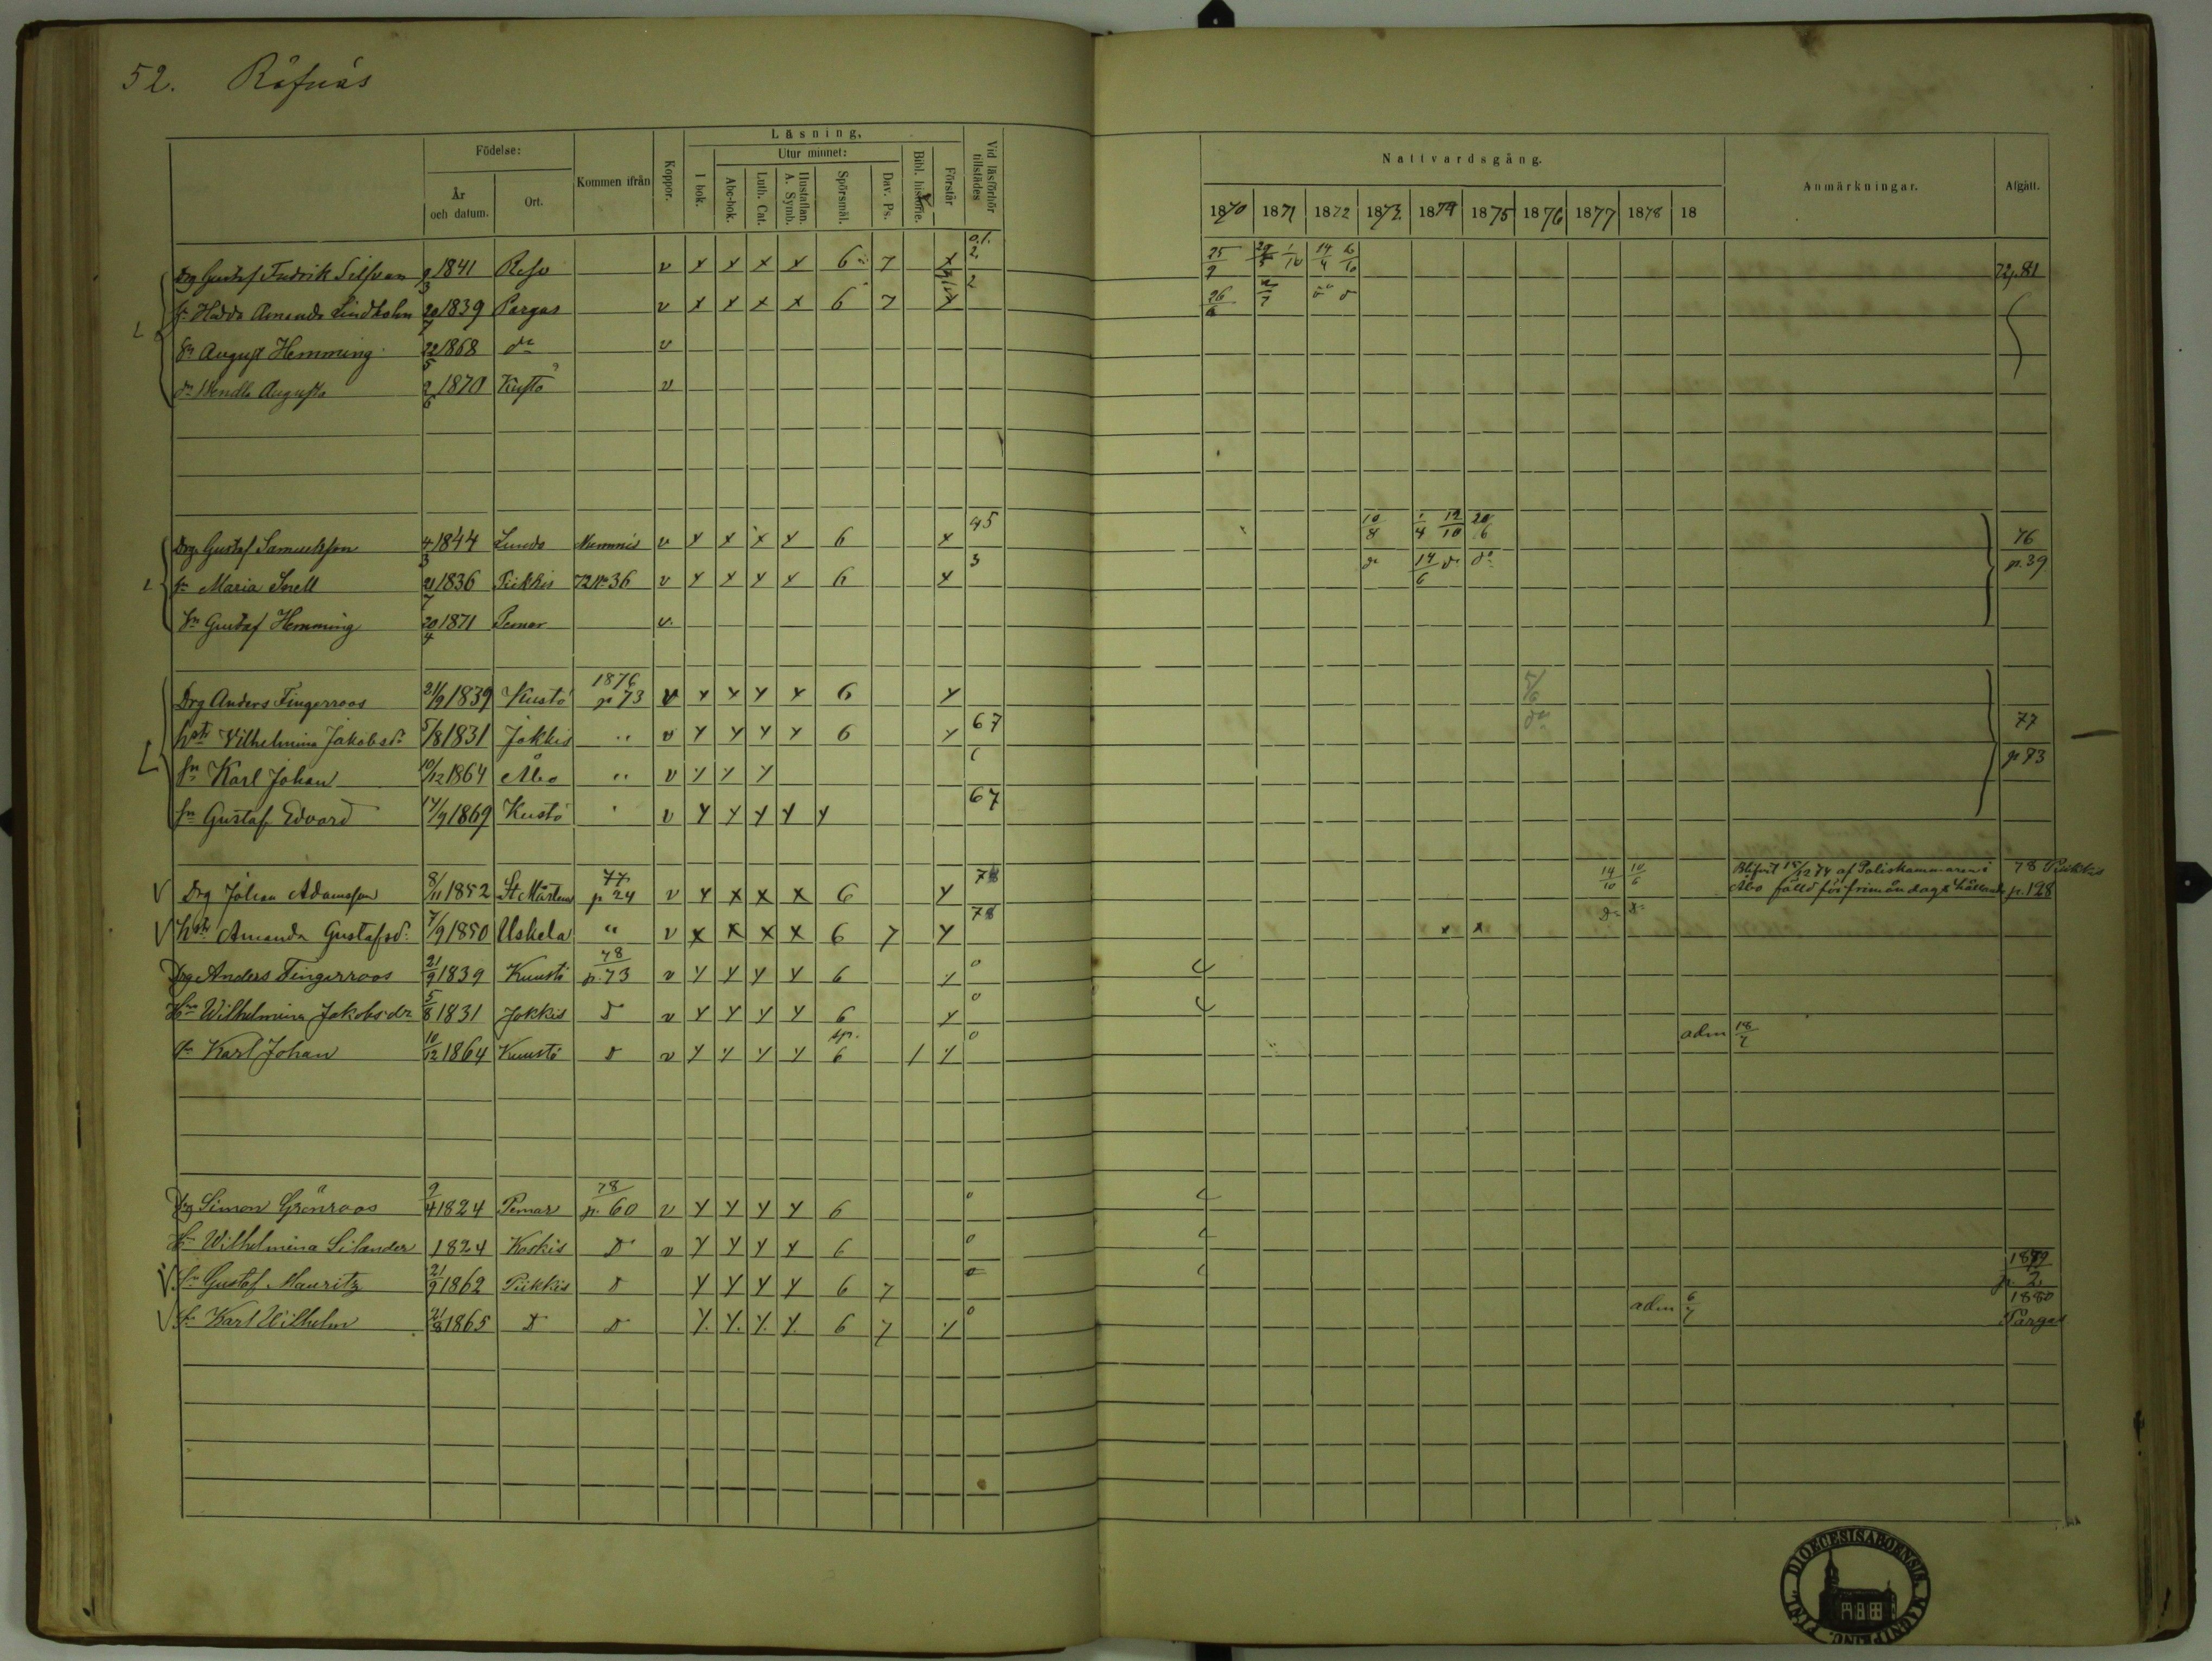 52. Råfnäs
Födelse: År och datum. Ort. Kommen ifrån Koppor. Läsning. I bok. Utur minnet: Abc-bok. Luth. Cat. Hustaflan. A. Symb. Spörsmål. Dav. Ps. Bibl. historie. Förstår Vid läsförhör tillstädes
Nattvardsgång. 1870 1871 1872 1873 1874 1875 1876 1877 1878 18 Anmärkningar. Afgått.
Drg Gustaf Fredrik 9/3 1841 v x x x x 6 7 x 2 14/4 72 p. 81
Amanda Lindholm 20/7 1839 Pargas v x x x x 6 7 2 26
Sn August Hemming 22/5 1868 do v
dr Wendla Augusta 2/6 1870 Kustö v
Drg Gustaf Samuelsson 4/3 1844 Lundo Nummis v x x x x 6 x 45 10/8 1/4 12/10 20/6 76
Maria Snell 21/7 1836 Piikkis 72 No 36 v x x x x 6 x 3 do 14/6 do do p. 39
Sn Gustaf Hemming 20/4 1871 Pemar v
Drg Anders Fingerroos 21/9 1839 Kustö 1876 p 73 v x x x x 6 x 5/6
hst Vilhelmina Jakobsd: 5/8 1831 Jokkis " v x x x x 6 x 67 do 77
Sn Karl Johan 10/12 1864 Åbo " v x x x p 73
Sn Gustaf Edvard 17/9 1869 Kustö " v x x x x x 67
v Drg Johan Adamsson 8/11 1852 St Mårtens 77 p 24 v x x x x 6 x 78 14/10 10/6 Blifvit 15/12 74 af Poliskammaren i 78 Piikkis
Åbo fälld för p. 128
v hst Amanda Gustafsd: 7/9 1850 Uskela " v x x x x 6 7 x 78 x x do do
Drg Anders Fingerroos 21/9 1839 Kuustö 78 p. 73 v x x x x 6 x 0
Hn Wilhelmina Jakobsdr 5/8 1831 Jokkis D v x x x x 6 x 0
Sn Karl Johan 10/12 1864 Kuustö D v x x x x sp. 6 x x 0 adm 18/7
Drg Simon Grönroos 9/4 1824 Pemar 78 p. 60 v x x x x 6 0
Wilhelmina Silander 1824 Koskis D v x x x x 6 0
v Sn Gustaf Mauritz 21/9 1862 Piikkis D x x x x 6 7 0 1879 p. 2
v Sn Karl Wilhelm 21/8 1865 D D x x x x 6 7 x 0 adm 6/7 1880 Pargas